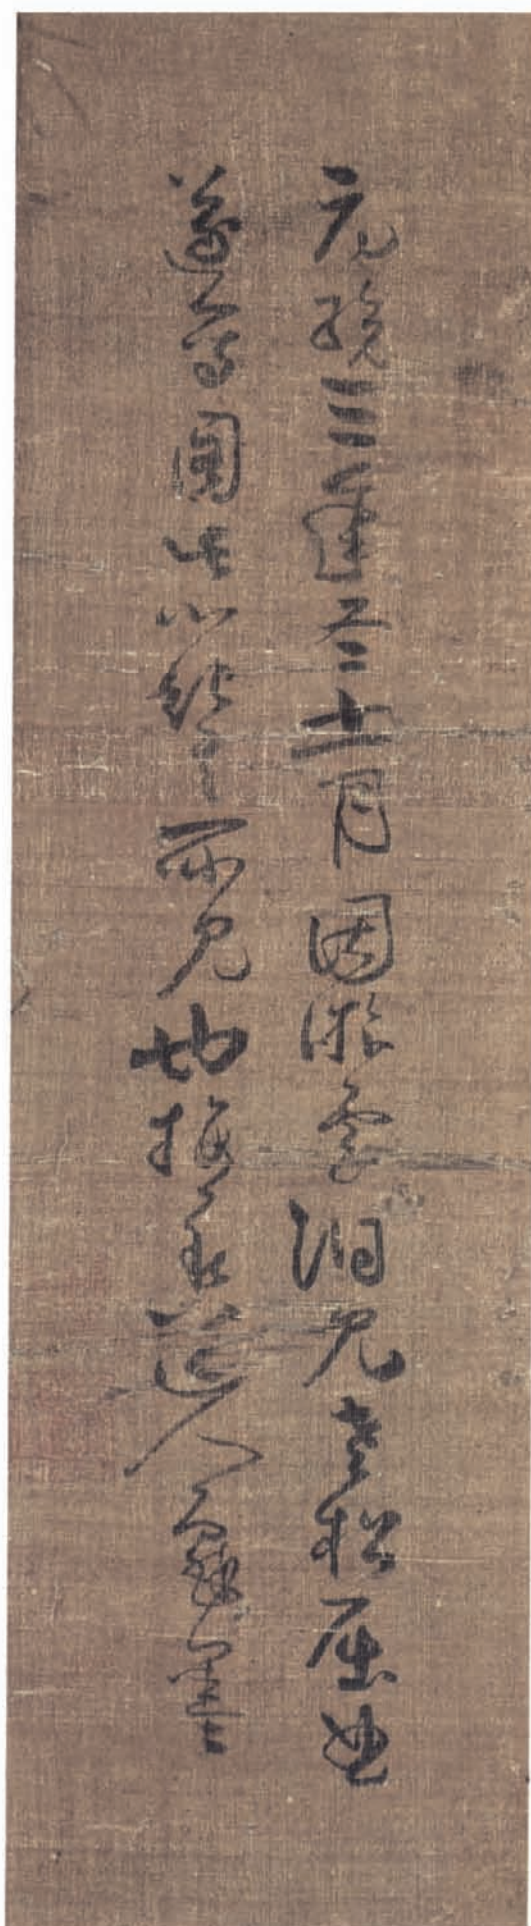 元統三年冬十一月因游雲洞見老松屈曲
遂寫圖此以紀所見也梅花道人戲墨